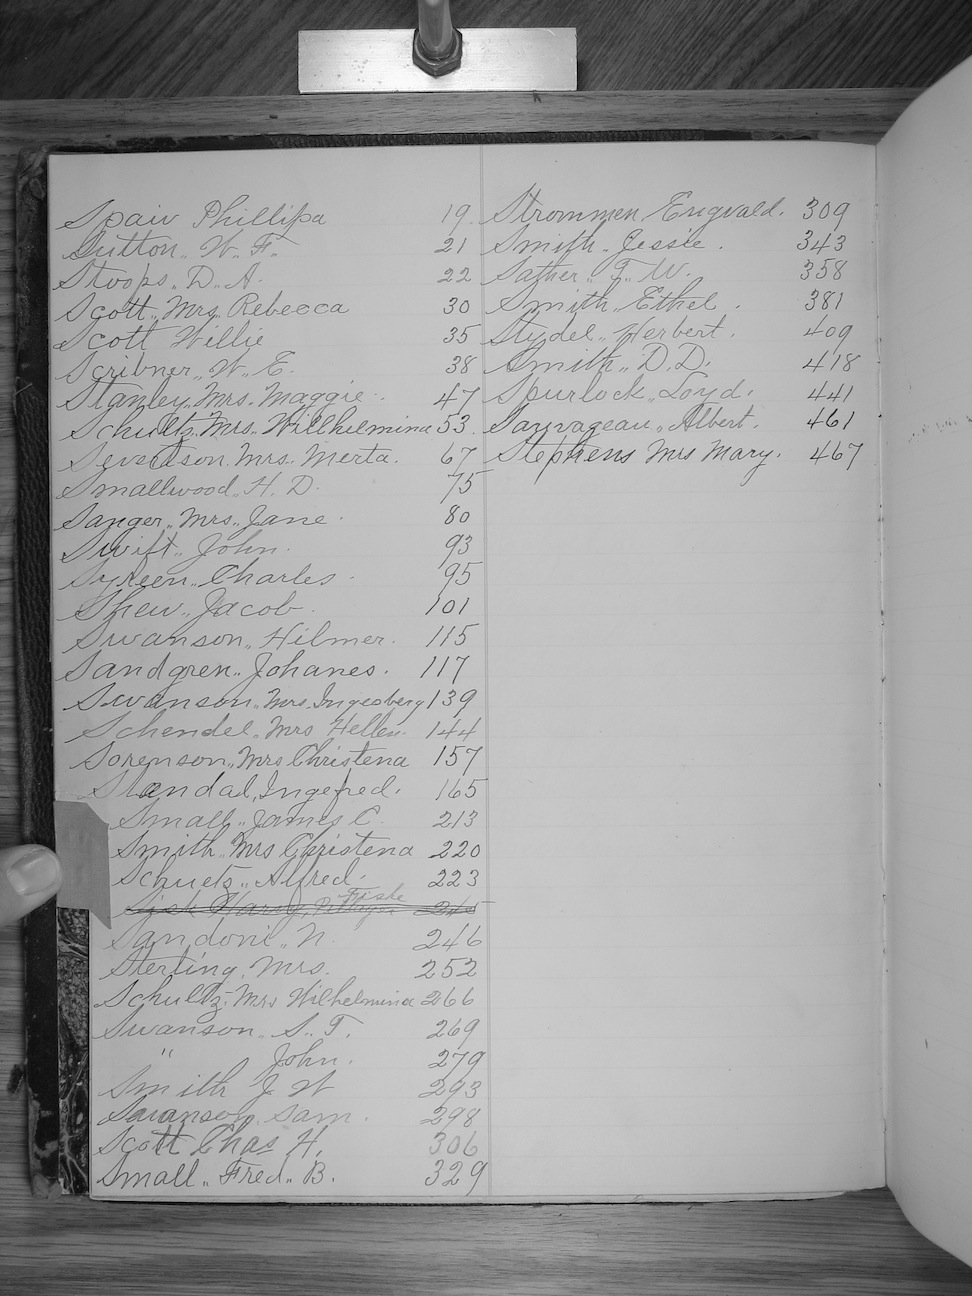 Spaiv Phillipa 19
Sutton, W. F. 21
Stoops, D. A. 22
Scott, Mrs. Rebecca 30
Scott Willie 35
Scribner, W. E. 38
Stanley, Mrs. Maggie 47
Schultz, Mrs. Willhelmina 53
Severtson, Mrs. Merta. 67
Smallwood, H. D. 75
Sanger, Mrs. Jane 80
Swift, John. 93
Syreen, Charles 95
Shew, Jacob 101
Swanson, Hilmer. 115
Sandgren, Johanes. 117
Swanson, Mrs. Ingeoberg 139
Schendel, Mrs Hellen 144
Sorenson, Mrs Christena 157
Standal, Ingefred. 165
Small, James C. 213
Smith, Mrs Christena 220
Schuetz, Alfred. 223
Fiske
Sisk Harry,
Sandoni, N. 246
Sterling, Mrs. 252
Schultz, Mrs Wilhelmina 266
Swanson, S. T. 269
" John. 279
Smith J W 293
Swanson, Sam. 298
Scott Chas H. 306
Small, Fred, B. 329
Strommen, Engvald. 309
Smith, Jessie. 343
Sather, T. W. 358
Smith, Ethel. 381
Stydel, Herbert. 409
Smith, D. D. 418
Spurlock, Loyd. 441
Sauvageau, Albert. 461
Stephens Mrs Mary. 467